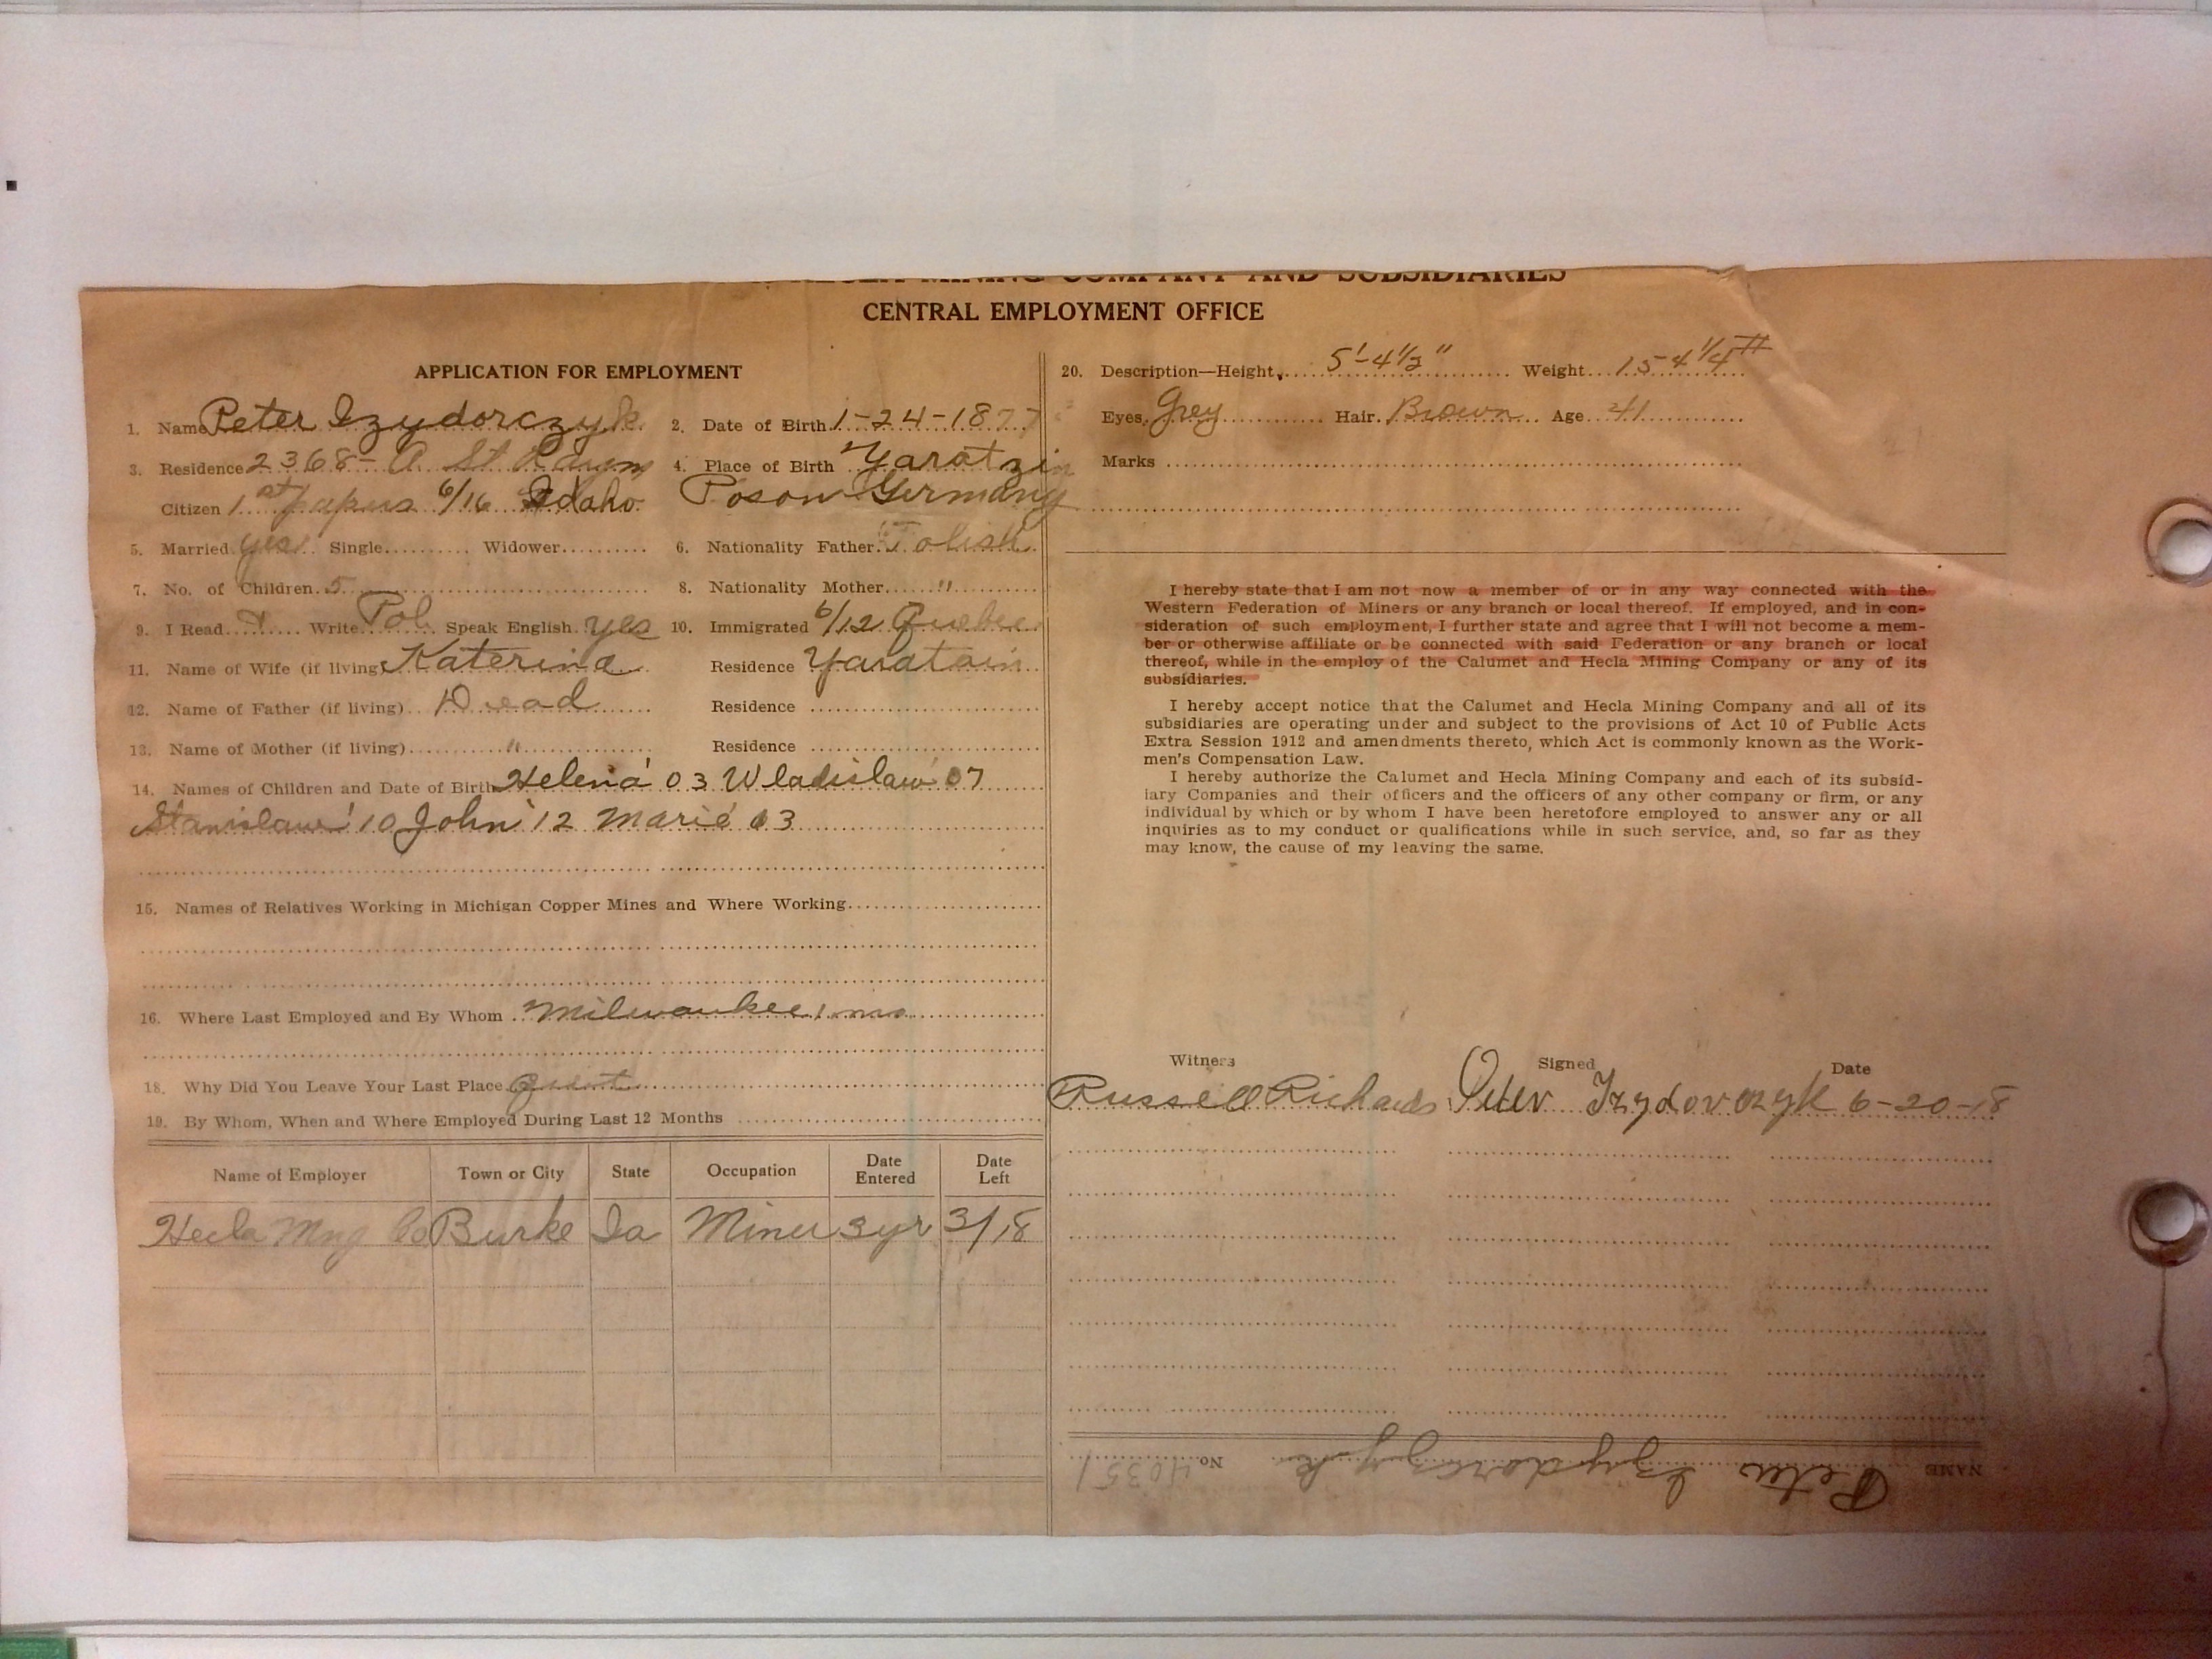 HECLA MINING COMPANY AND SUBSIDIARIES
CENTRAL EMPLOYMENT OFFICE
APPLICATION FOR EMPLOYMENT
1. Name Peter Izydorczyk 2. Date of Birth 1-24-1877
3. Residence 2368- A St 4. Place of Birth Yaratzin
Citizen 1st papers 6/16 Idaho Poson Germany
5. Married yes Single Widower 6. Nationality Father Polish
7. No. of Children 5 8. Nationality Mother "
9. I Read Write Pol Speak English yes 10. Immigrated 6/12 Quebec
11. Name of Wife (if living) Katerina Residence
12. Name of Father (if living) Dead Residence
13. Name of Mother (if living) " Residence
14. Names of Children and Date of Birth Helena' 03 Wladislaw' 07
Stanislaw' 10 John' 12 Marie' 03
15. Names of Relatives Working in Michigan Copper Mines and Where Working
16. Where Last Employed and By Whom Milwaukee
18. Why Did You Leave Your Last Place
19. By Whom, When and Where Employed During Last 12 Months
Name of Employer Town or City State Occupation Date Entered Date Left
Hecla Mng Co Burke Ida Miner 3yr 3/18
20. Description—Height 5'-4 1/2" Weight 154 1/4 #
Eyes Grey Hair Brown Age 41
Marks
I hereby state that I am not now a member of or in any way connected with the
Western Federation of Miners or any branch or local thereof. If employed, and in con-
sideration of such employment, I further state and agree that I will not become a mem-
ber or otherwise affiliate or be connected with said Federation or any branch or local
thereof, while in the employ of the Calumet and Hecla Mining Company or any of its
subsidiaries.
I hereby accept notice that the Calumet and Hecla Mining Company and all of its
subsidiaries are operating under and subject to the provisions of Act 10 of Public Acts
Extra Session 1912 and amendments thereto, which Act is commonly known as the Work-
men's Compensation Law.
I hereby authorize the Calumet and Hecla Mining Company and each of its subsid-
iary Companies and their officers and the officers of any other company or firm, or any
individual by which or by whom I have been heretofore employed to answer any or all
inquiries as to my conduct or qualifications while in such service, and, so far as they
may know, the cause of my leaving the same.
Witness Signed Date
Russell Richards Peter Izydorczyk 6-20-18
NAME Peter Izydorczyk No. 40351